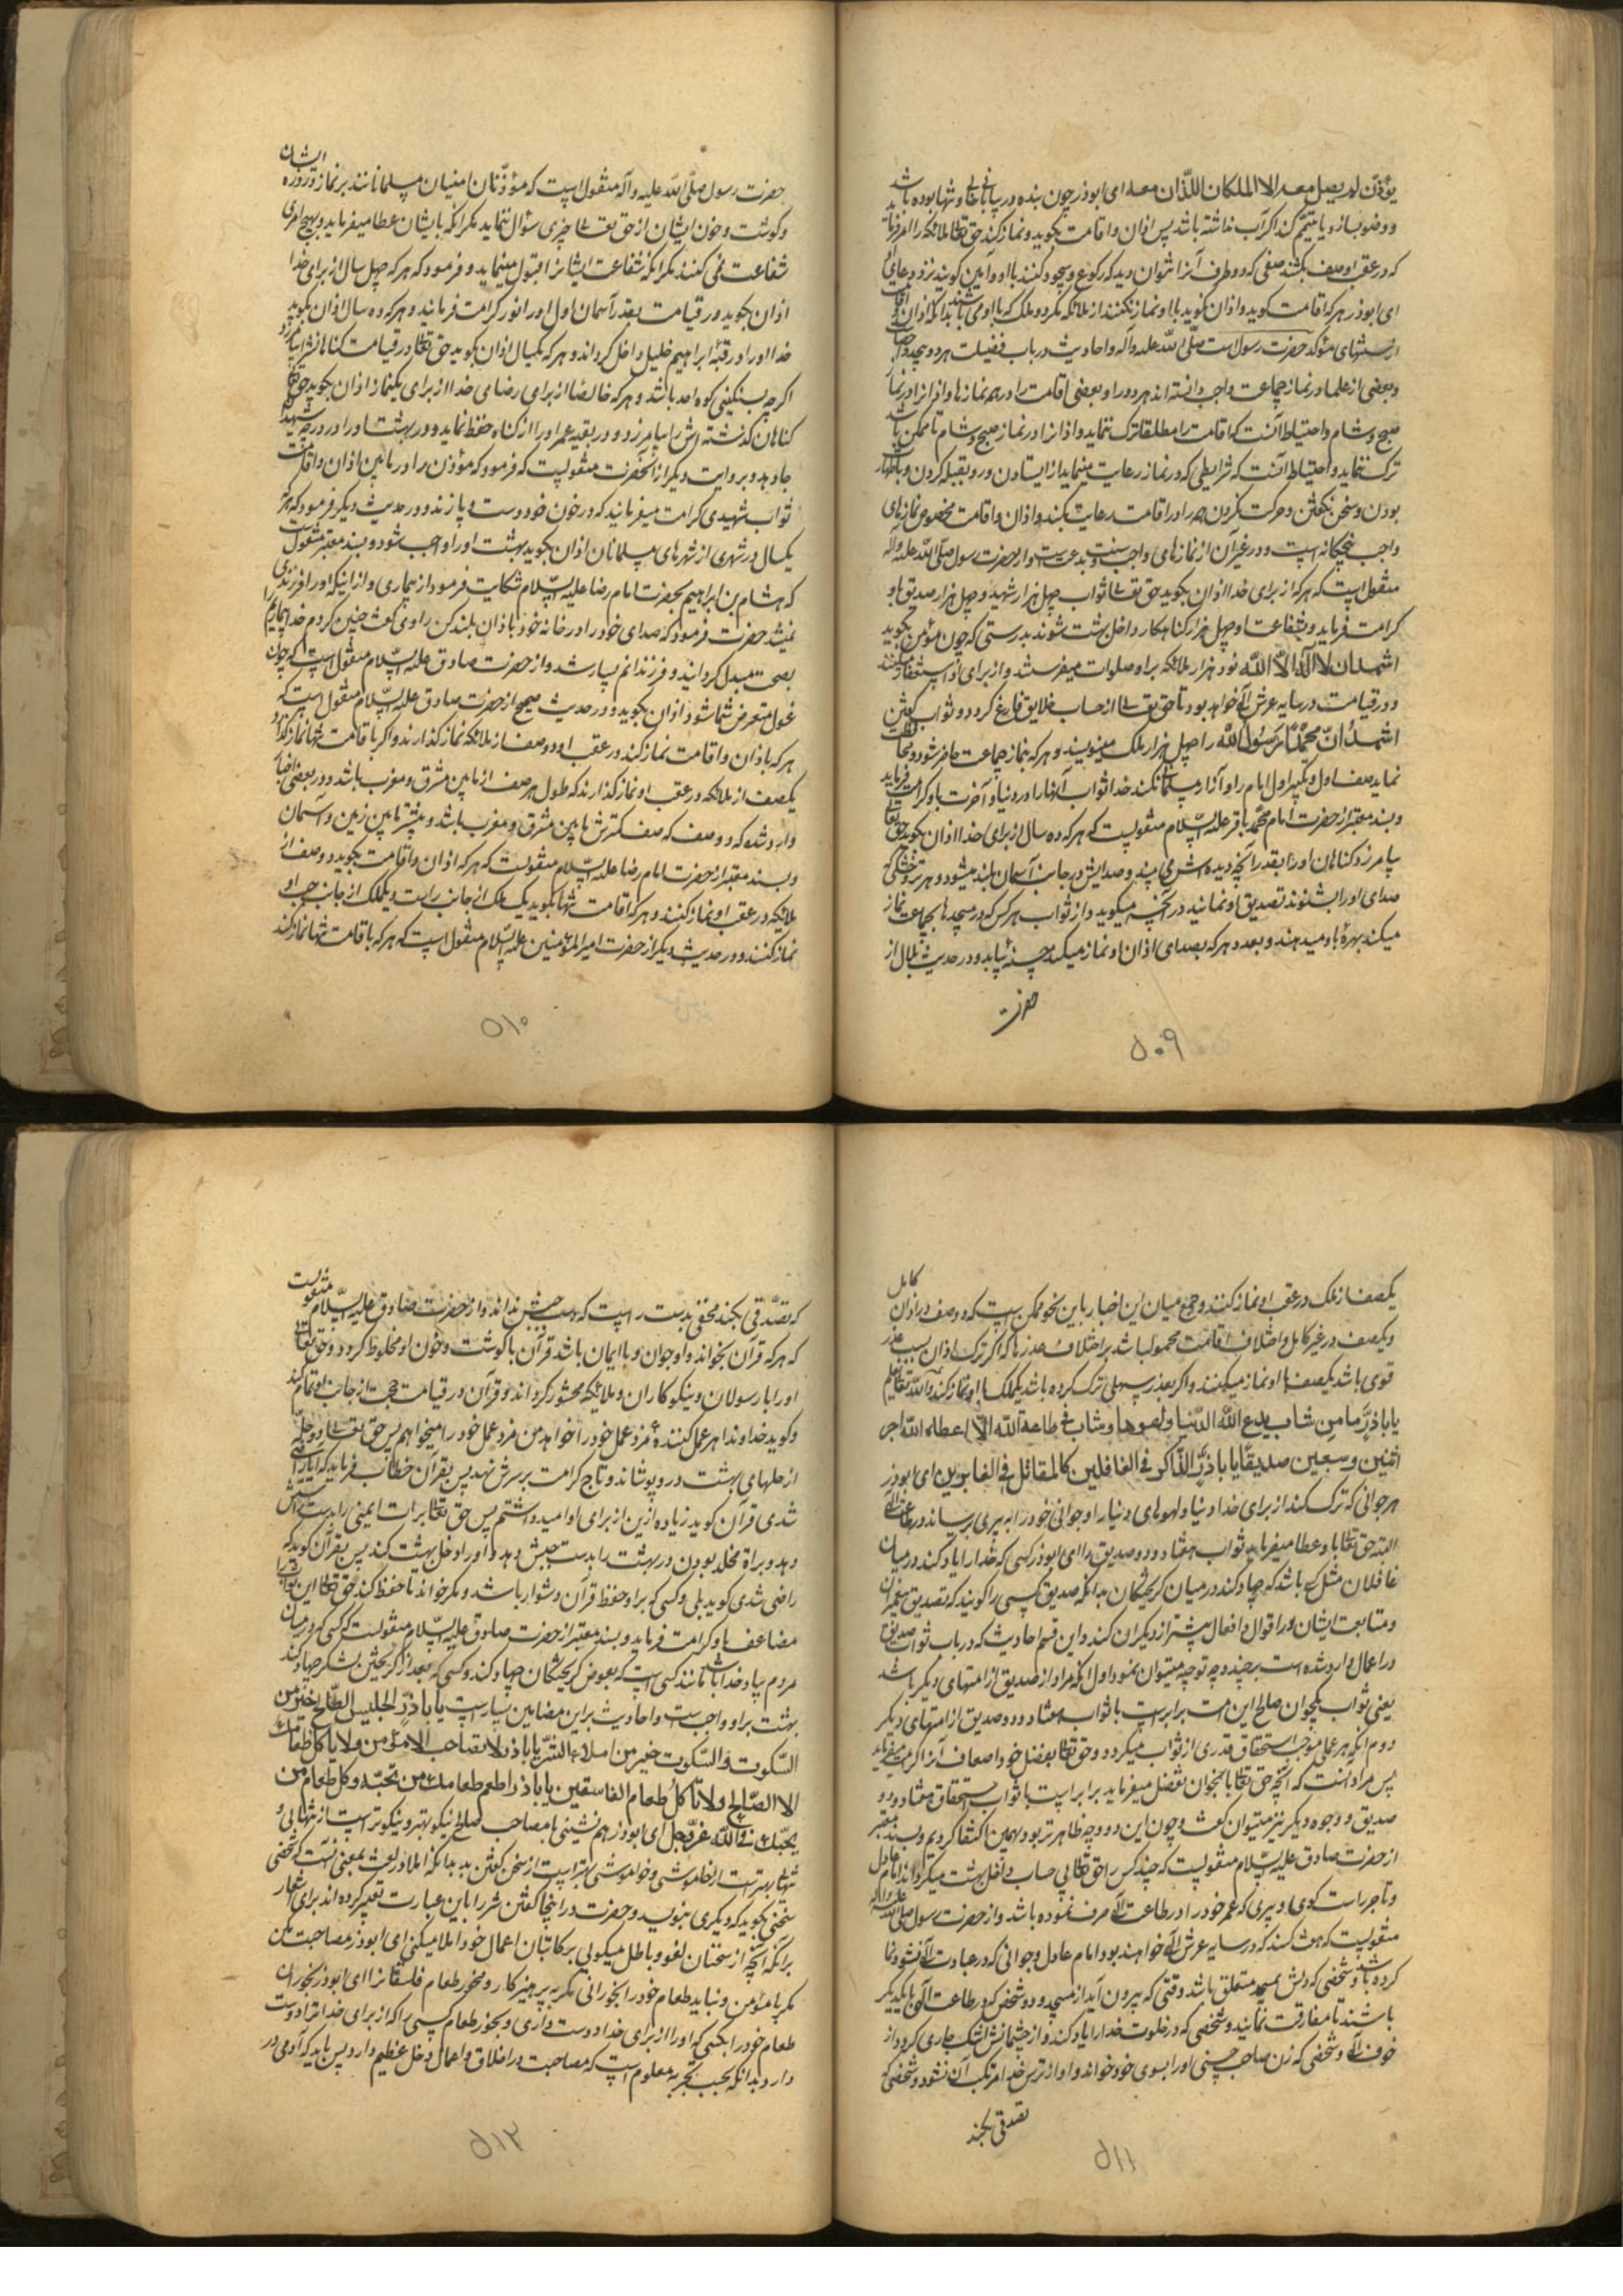 یؤذن لم یصل معه الا الملکان اللذان معه ای ابوذر چون بنده در بیابانی خالی و تنها بوده باشد
و وضو بسازد یا تیمم کند اگر آب نداشته باشد پس اذان و اقامت بگوید و نماز کند حق تعالی ملائکه را امر فرماید
که در عقب او صف بکشند صفی که دو طرف آنرا نتوان دید که رکوع و سجود کنند با او و آمین گویند نزد دعای او
ای ابوذر هر که اقامت گوید و اذان نگوید با او نماز نکنند از ملائکه مگر دو ملک که با او می باشند بدانکه اذان و اقامت
از سنتهای مؤکد حضرت رسول است صلّی الله علیه وآله و احادیث در باب فضیلت هر دو بیحد و احصاست
و بعضی از علما در نماز جماعت واجب دانسته اند هر دو را و بعضی اقامت را در همه نمازها و اذانرا در نماز
صبح و شام و احتیاط آنست که اقامت را مطلقا ترک ننماید و اذانرا در نماز صبح و شام تا ممکن باشد
ترک ننماید و احتیاط آنست که شرایطی که در نماز رعایت مینماید از ایستادن و رو بقبله کردن و با طهارت
بودن و سخن نگفتن و حرکت نکردن همه را در اقامت رعایت بکند و اذان و اقامت مخصوص نمازهای
واجب پنجگانه است و در غیر آن از نمازهای واجب و سنت بدعت است و از حضرت رسول صلّی الله علیه وآله
منقول است که هر که از برای خدا اذان بگوید حق تعالی ثواب چهل هزار شهید و چهل هزار صدیق باو
کرامت فرماید و بشفاعت او چهل هزار گناهکار داخل بهشت شوند بدرستی که چون مؤذن بگوید
اشهد ان لا اله الا الله نود هزار ملائکه بر او صلوات میفرستند و از برای او استغفار میکنند
و در قیامت در سایه عرش الهی خواهد بود تا حق تعالی از حساب خلایق فارغ گردد و ثواب گفتن
اشهد أنّ محمّدا رسول الله را چهل هزار ملک مینویسند و هر که بنماز جماعت حاضر شود و محافظت
نماید صف اول و تکبیر اول امام را و آزار مسلمانی نکند خدا ثواب آنها را در دنیا و آخرت باو کرامت فرماید
و بسند معتبر از حضرت امام محمّد باقر علیه السّلام منقولیست که هر که ده سال از برای خدا اذان بگوید حق تعالی
بیامرزد گناهان او را بقدر آنچه دیده اش می بیند و صدایش در جانب آسمان بلند میشود و هر تر و خشکی که
صدای او را بشنوند تصدیق او نمایند در آنچه میگوید و از ثواب هر کس که در مسجد با جماعت نماز
میکند بهرهٔ باو میدهند و بعدد هر که بصدای اذان او نماز میکند حسنهٔ بیابد و در حدیث بلال از
حضرت
۵۰۹
ایشان
حضرت رسول صلّی الله علیه وآله منقول است که مؤذّنان امنیان مسلمانانند بر نماز و روزه
و گوشت و خون ایشان از حق تعالی چیزی سؤال ننمایند مگر آنکه بایشان عطا میفرماید و بهیچ امری
شفاعت نمی کنند مگر آنکه شفاعت ایشانرا قبول مینماید و فرمود که هر که چهل سال از برای خدا
اذان بگوید در قیامت بقدر آسمان اول او را نور کرامت فرمایند و هر که ده سال اذان بگوید
خدا او را در قبهٔ ابراهیم خلیل داخل گرداند و هر که یکسال اذان بگوید حق تعالی در قیامت گناهانشرا بیامرزد
اگرچه بسنگینی کوه احد باشد و هر که خالصا از برای رضای خدا از برای یکنماز اذان بگوید حق تعالی
گناهان گذشته اش را بیامرزد و در بقیه عمر او را از گناه حفظ نماید و در بهشت او را در درجه شهدا
جا دهد و بروایت دیگر از آنحضرت منقولیست که فرمود که مؤذن را در مابین اذان و اقامت
ثواب شهیدی کرامت میفرمایند که در خون خود دست و پا زند و در حدیث دیگر فرمود که هر که
یکسال در شهری از شهرهای مسلمانان اذان بگوید بهشت او را واجب شود و بسند معتبر منقول است
که هشام بن ابراهیم بحضرت امام رضا علیه السّلام شکایت فرمود از بیماری و از اینکه او را فرزندی
نمیشد حضرت فرمود که صدای خود را در خانه خود باذان بلند کن راوی گفت چنین کردم خدا بیماریم را
بصحت مبدل گردانید و فرزندانم بسیار شد و از حضرت صادق علیه السّلام منقول است که چون
غول متعرض شما شود اذان بگوئید و در حدیث صحیح از حضرت صادق علیه السّلام منقول است که
هر که باذان و اقامت نماز کند در عقب او دو صف از ملائکه نماز گذارند و اگر باقامت تنها نماز کند
یکصف از ملائکه در عقب او نماز گذارند که طول هر صف از مابین مشرق و مغرب باشد و در بعضی اخبار
وارد شده که دو صف که صف کمترش مابین مشرق و مغرب باشد و بیشتر مابین زمین و آسمان
و بسند معتبر از حضرت امام رضا علیه السّلام منقولست که هر که اذان و اقامت بگوید دو صف از
ملائکه در عقب او نماز کنند و هر که اقامت تنها بگوید یک ملک از جانب راست و یکملک از جانب چپ او
نماز کنند و در حدیث دیگر از حضرت امیر المؤمنین علیه السّلام منقول است که هر که باقامت تنها نماز کند
۵۱۰
کامل
یکصف از ملک در عقب او نماز کنند و جمع میان این اخبار باین نحو ممکن است که دو صف در اذان
و یکصف در غیر کامل و اختلاف اقامت محمول باشد بر اختلاف عذرها که اگر ترک اذان بسبب عذر
قوی باشد یکصف با او نماز میکنند و اگر بعذر سهلی ترک کرده باشد یکملک با او نماز کند والله تعالی یعلم
یاباذرّ ما من شاب یدع الله الدنیا ولهوها وشاب فی طاعة الله الّا اعطاه الله اجر
اثنین وسبعین صدیقا یا باذرّ الذّاکر فی الغافلین کالمقاتل فی الفارین ای ابوذر
هر جوانی که ترک کند از برای خدا دنیا و لهوهای دنیا را و جوانی خود را به پیری برساند در طاعت الهی
البته حق تعالی باو عطا میفرماید ثواب هفتاد و دو صدیق را ای ابوذر کسی که خدا را یاد کند در میان
غافلان مثل کسی باشد که جهاد کند در میان گریختگان بدانکه صدیق کسی را گویند که تصدیق پیغمبران
و متابعت ایشان در اقوال و افعال بیشتر از دیگران کند و این قسم احادیث که در باب ثواب صدیق
در اعمال وارد شده است بر چند وجه توجیه میتوان نمود اول آنکه مراد از صدیق از امتهای دیگر باشد
یعنی ثواب یکجوان صالح این امت برابر است با ثواب هفتاد و دو صدیق از امتهای دیگر
دوم آنکه هر عملی موجب استحقاق قدری از ثواب میگردد و حق تعالی بفضل خود اضعاف آنرا کرامت میفرماید
پس مراد آنست که آنچه حق تعالی باینجوان تفضل میفرماید برابر است با ثواب استحقاق هفتاد و دو
صدیق و وجوه دیگر نیز میتوان گفت و چون این دو وجه ظاهرتر بود بهمین اکتفا کردیم و بسند معتبر
از حضرت صادق علیه السّلام منقولیست که چند کس را حق تعالی بی حساب داخل بهشت میگرداند امام عادل
و تاجر راست گوی و پیری که عمر خود را در طاعت الهی صرف نموده باشد و از حضرت رسول صلّی الله علیه وآله
منقولیست که هفت کسند که در سایه عرش الهی خواهند بود امام عادل و جوانی که در عبادت الهی نشو و نما
کرده باشد و شخصی که دلش بمسجد متعلق باشد وقتی که بیرون آید از مسجد و دو شخص که در طاعت الهی با یکدیگر
باشند تا مفارقت نمایند و شخصی که در خلوت خدا را یاد کند و از چشمانش اشک جاری گردد از
خوف الهی و شخصی که زن صاحب حسنی او را بسوی خود خواند و او از ترس خدا مرتکب آن نشود و شخصی که
تصدقی بکند
۵۱۱
منقولست
که تصدّقی بکند مخفی بدست راست که دست چپش نداند و از حضرت صادق علیه السّلام
که هر که قرآن بخواند و او جوان و با ایمان باشد قرآن با گوشت و خون او مخلوط گردد و حق تعالی
او را با رسولان و نیکوکاران و ملائکه محشور گرداند و قرآن در قیامت حجت از جانب او تمام کند
و گوید خداوندا هر عمل کنندهٔ مزد عمل خود را خواهد من مزد عمل خود را میخواهم پس حق تعالی دو حلّه
از حلهای بهشت در و پوشاند و تاج کرامت بر سرش نهد پس بقرآن خطاب فرماید که آیا راضی
شدی قرآن گوید زیاده ازین از برای او امید داشتم پس حق تعالی برات ایمنی را بدست راستش
دهد و براة مخلد بودن در بهشت را بدست چپش دهد و او را داخل بهشت کند پس بقرآن گوید که
راضی شدی گوید بلی و کسی که بر او حفظ قرآن دشوار باشد و مکرر خواند تا حفظ کند حق تعالی این ثواب را
مضاعف باو کرامت فرماید و بسند معتبر از حضرت صادق علیه السّلام منقولست که کسی که در میان
مردم بیاد خدا باشد مانند کسی است که بعوض گریختگان جهاد کند و کسی که بعد از گریختن لشکر جهاد کند
بهشت بر او واجب است و احادیث بر این مضامین بسیار است یا باذرّ الجلیس الصّالح خیر من
السّکوت والسّکوت خیر من املاء الشّرّ یا باذر لا تصاحب الا مؤمن ولا یاکل طعامک
الا الصّالح ولا تاکل طعام الفاسقین یا باذر اطعم طعامک من تحبّه وکل طعام من
یحبّک فی الله عزّوجل ای ابوذر هم نشینی با مصاحب صالح نیکو بهتر و نیکوتر است از تنهائی و
تنهائی بهتر است از خاموشی و خواموشی بهتر است از سخن گفتن بد بدانکه املا در لغت بمعنی آنست که شخصی
سخنی بگوید که دیگری بنویسد و حضرت در اینجا گفتن شر را باین عبارت تعبیر کرده اند برای اشعار
بر آنکه آنچه از سخنان لغو و باطل میگوئی بر کاتبان اعمال خود املا میکنی ای ابوذر مصاحبت مکن
مگر با مؤمن و نباید طعام خود را بخورانی مگر به پرهیزکار و مخور طعام فاسقانرا ای ابوذر بخوران
طعام خود را بکسی که او را از برای خدا دوست داری و بخور طعام کسی را که از برای خدا ترا دوست
دارد بدانکه بحسب تجربه معلوم است که مصاحبت در اخلاق و اعمال دخل عظیم دارد پس باید که آدمی در
۵۱۲